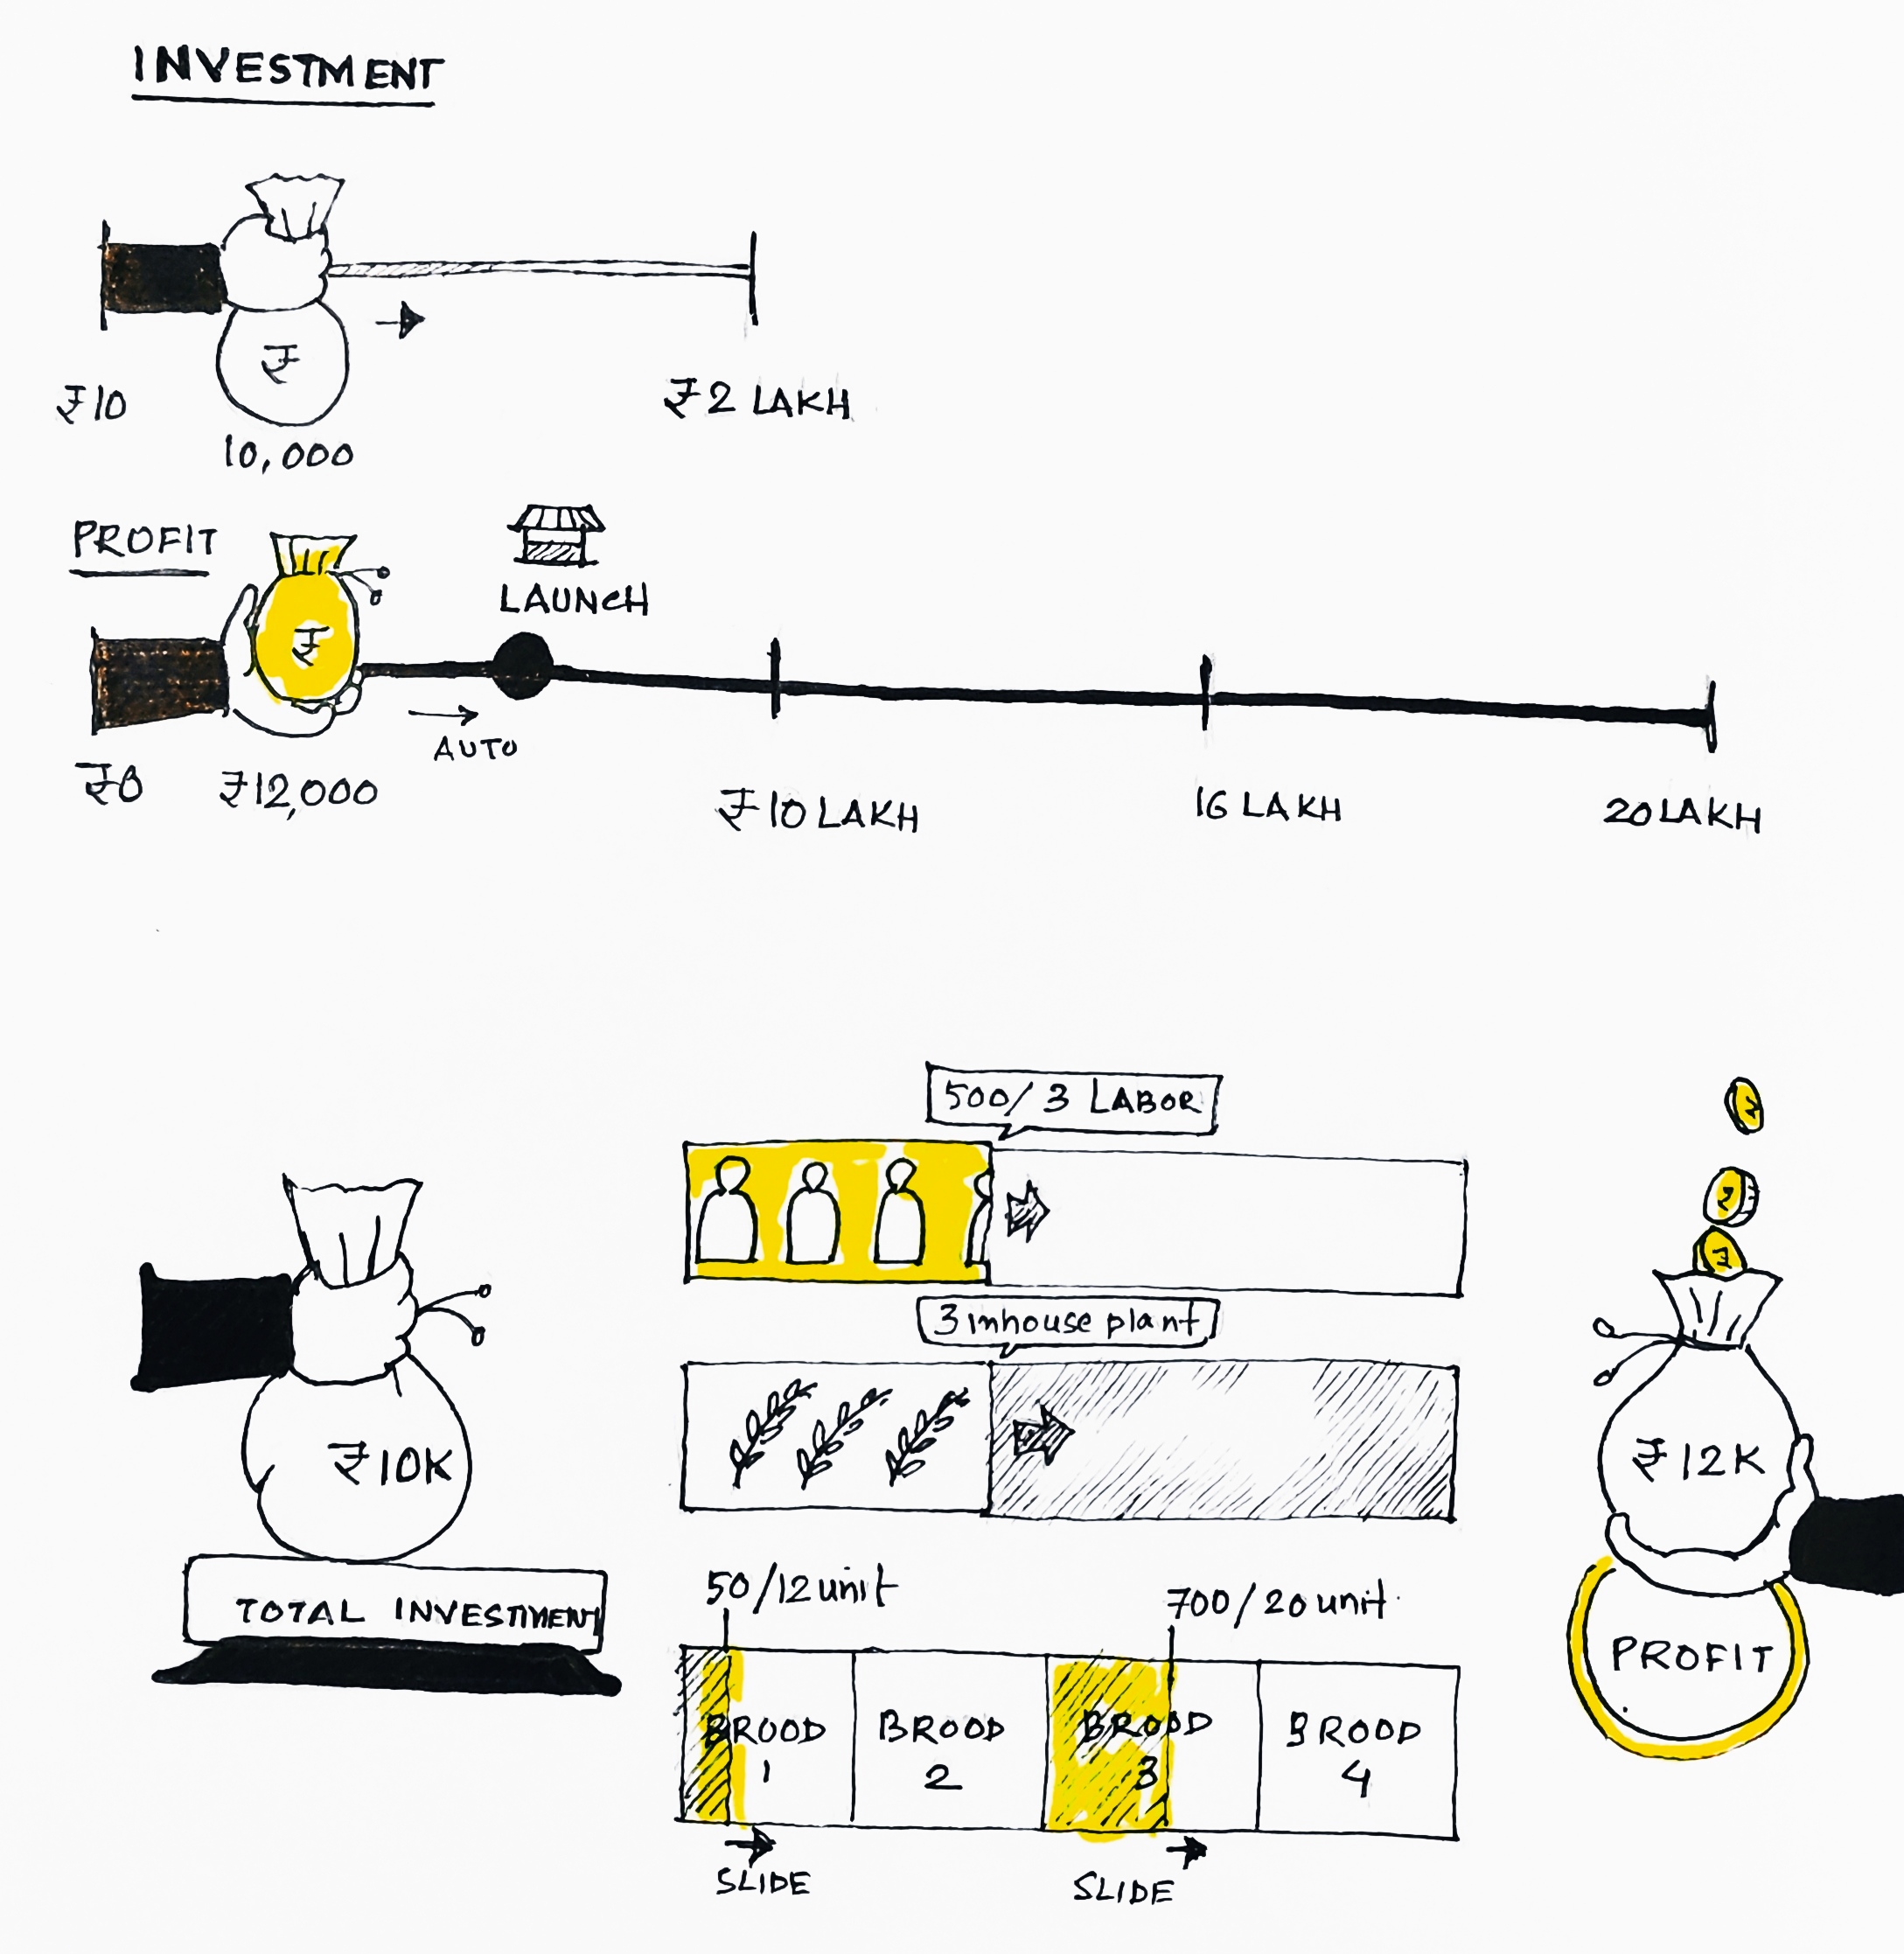 INVESTMENT
₹
₹10
10,000
₹2 LAKH
PROFIT
₹
LAUNCH
AUTO
₹0
₹12,000
₹10 LAKH
16 LAKH
20 LAKH
500/ 3 LABOR
3 inhouse plant
₹10K
TOTAL INVESTMENT
50/12 unit
700/20 unit
BROOD
1
BROOD
2
BROOD
3
BROOD
4
SLIDE
SLIDE
₹
₹
₹
₹12K
PROFIT